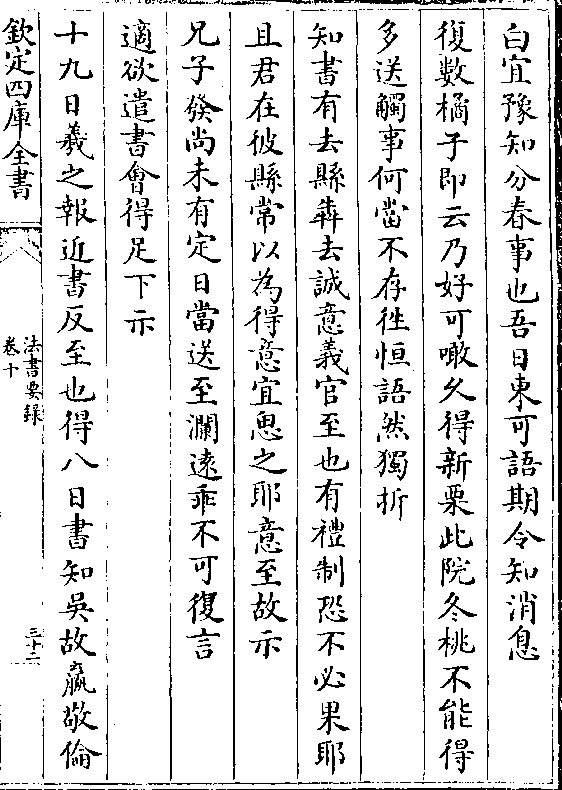 白宜豫知分春事也吾日東可語期令知消息
復數橘子即云乃好可噉久得新栗此院冬桃不能得
多送觸事何當不存往恒語然獨折
知書有去縣犇去誠意義官至也有禮制恐不必果耶
且君在彼縣常以為得意宜思之耶意至故示
兄子發尚未有定日當送至瀾遠乖不可復言
適欲遣書會得足下示
十九日羲之報近書反至也得八日書知吳故羸敬倫
欽定四庫全書
法書要錄
卷十
三十二